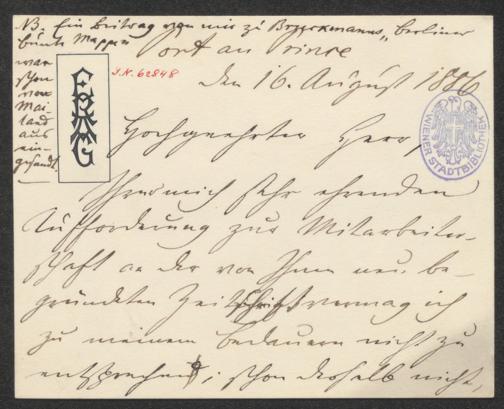 NB. Ein Beitrag von mir zu Bruckmanns „Berliner
bunte Mappe“
war
schon
von
Mai
land
aus
ein-
gesandt.
Port au Prince
J.N. 62848
den 16. August 1886
Hochgeehrter Herr,
WIENER STADTBIBLIOTHEK
Ihrer mich sehr ehrenden
Aufforderung zur Mitarbeiter-
schaft an der von Ihnen neu be-
gründeten Zeitschrift vermag ich
zu meinem Bedauern nicht zu
entsprechen; schon deshalb nicht,